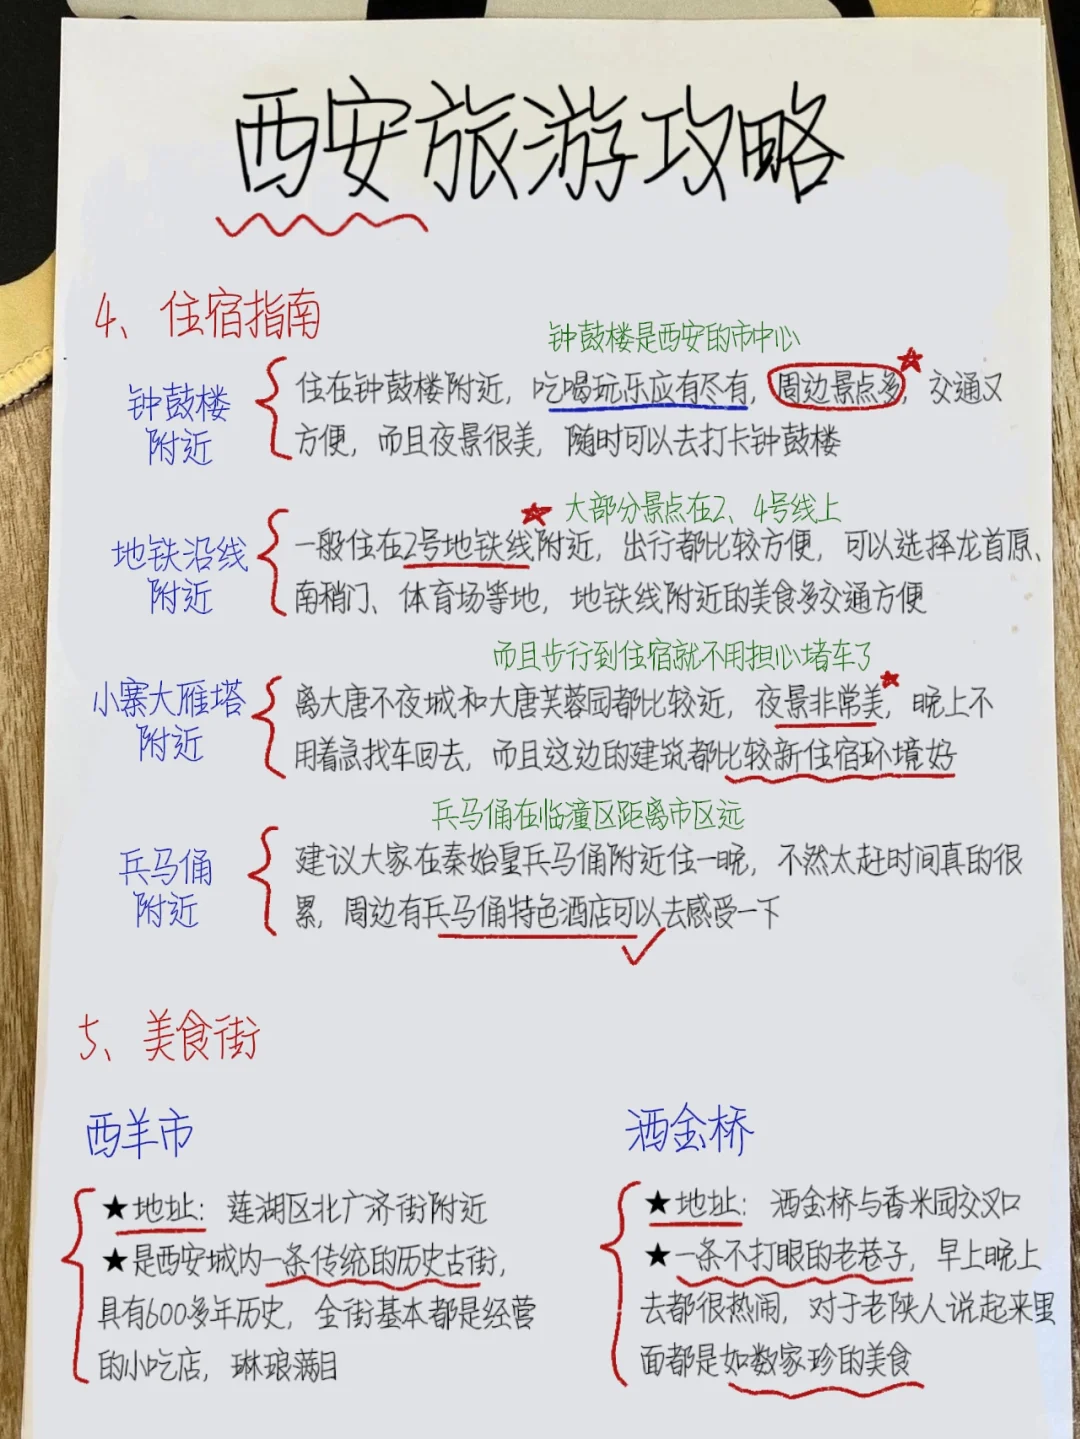 西安旅游攻略
4、住宿指南
钟鼓楼是西安的市中心
钟鼓楼
附近
住在钟鼓楼附近，吃喝玩乐应有尽有，周边景点多，交通又
方便，而且夜景很美，随时可以去打卡钟鼓楼
大部分景点在2、4号线上
地铁沿线
附近
一般住在2号地铁线附近，出行都比较方便，可以选择龙首原、
南稍门、体育场等地，地铁线附近的美食多交通方便
而且步行到住宿就不用担心堵车了
小寨大雁塔
附近
离大唐不夜城和大唐芙蓉园都比较近，夜景非常美，晚上不
用着急找车回去，而且这边的建筑都比较新住宿环境好
兵马俑在临潼区距离市区远
兵马俑
附近
建议大家在秦始皇兵马俑附近住一晚，不然太赶时间真的很
累，周边有兵马俑特色酒店可以去感受一下
5、美食街
西羊市
★地址：莲湖区北广济街附近
★是西安城内一条传统的历史古街，
具有600多年历史，全街基本都是经营
的小吃店，琳琅满目
洒金桥
★地址：洒金桥与香米园交叉口
★一条不打眼的老巷子，早上晚上
去都很热闹，对于老陕人说起来里
面都是如数家珍的美食